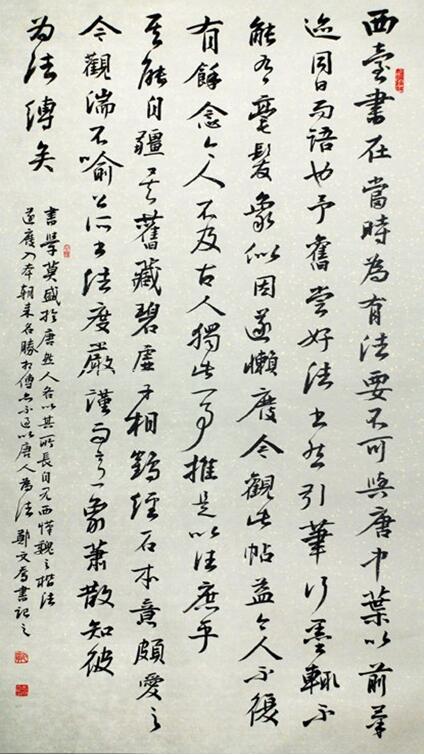 西臺書在當時為有法要不可與唐中葉以前筆
迹同日而語也予舊嘗好法書然引筆行墨輒不
能有毫髮象似因遂懶廢今觀此帖益令人不復
有餘念今人不及古人獨此一事推是以往庶乎
其能自疆矣舊藏碧虛子相鶴經石本意頗愛之
今觀湍石喻公所書法度嚴謹而意象蕭散知彼
為法縛矣
書學莫盛於唐然人各以其所長自見而漢魏之楷法
遂廢入本朝來名勝相傳亦不過以唐人為法 鄭文書記之